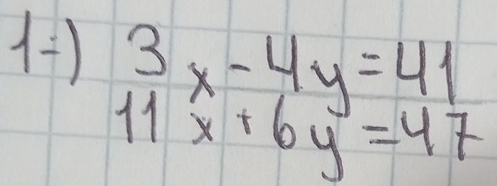 1-) 3x-4y=41
11x+6y=47